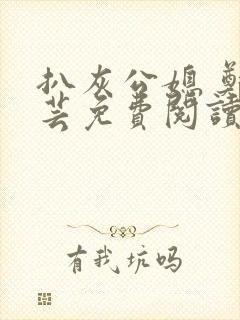 扒灰公媳 鄭
芸免費閱讀
有我坑吗